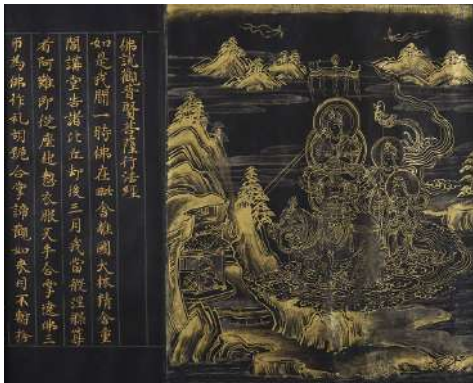 佛說觀普賢菩薩行法經
如是我聞一時佛在毗舍離國大林精舍重
閣講堂告諸比丘却後三月我當般涅槃尊
者阿難即從座起整衣服叉手合掌遶佛三
帀為佛作礼胡跪合掌諦觀如来目不暫捨